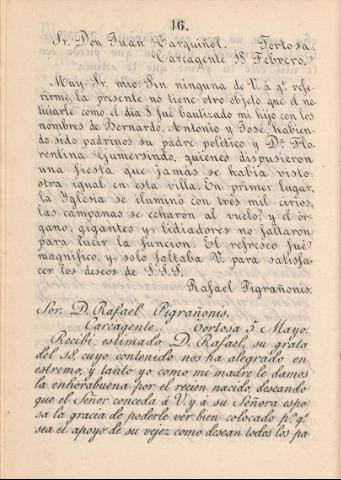 16.
Sr. Don Juan Targuiñol. Tortosa.
Carcagente 18 Febrero.
Muy Sr. mio: Sin ninguna de V. á q.e refe-
rirme, la presente no tiene otro objeto que el no-
ticiarle como el dia 8 fué bautizado mi hijo con los
nombres de Bernardo, Antonio y José, habien-
do sido padrinos su padre político y D.ª Flo-
rentina Gumersindo, quienes dispusieron
una fiesta que jamás se habia visto
otra igual en esta villa. En primer lugar,
la Iglesia se iluminó con tres mil cirios,
las campanas se echaron al vuelo, y el ór-
gano, gigantes y lidiadores no faltaron
para lucir la funcion. El refresco fué
magnífico, y solo faltaba V. para satisfa-
cer los deseos de S.S.S.
Rafael Pigrañonis.
Sor. D. Rafael Pigrañonis.
Carcagente. Tortosa 5 Mayo.
Recibí, estimado D. Rafael, su grata
del 18, cuyo contenido nos ha alegrado en
estremo, y tanto yo como mi madre le damos
la enhorabuena por el recien nacido, deseando
que el Señor conceda á V. y á su Señora espo-
sa la gracia de poderle ver bien colocado p.a q.e
sea el apoyo de su vejez como desean todos los pa